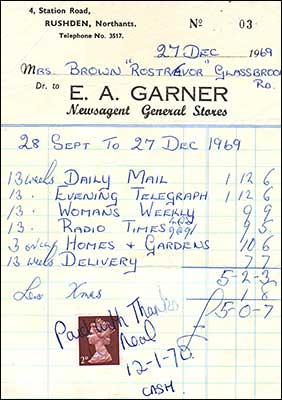 4, Station Road,
RUSHDEN, Northants.
Telephone No. 3517.
No 03
27 Dec 1969
Mrs. Brown "Rostrevor" Glassbrook Rd.
Dr. to E. A. GARNER
Newsagent General Stores
28 Sept To 27 Dec 1969
13 weeks Daily Mail 1 12 6
13 . Evening Telegraph 1 12 6
13 . Womans Weekly 9 9
13 . Radio Times 9 5
3 only Homes & Gardens 10 6
13 weeks Delivery 7 7
5-2-3
Less Xmas 1 8
£5-0-7
Paid with Thanks
Neal
12-1-70
CASH.